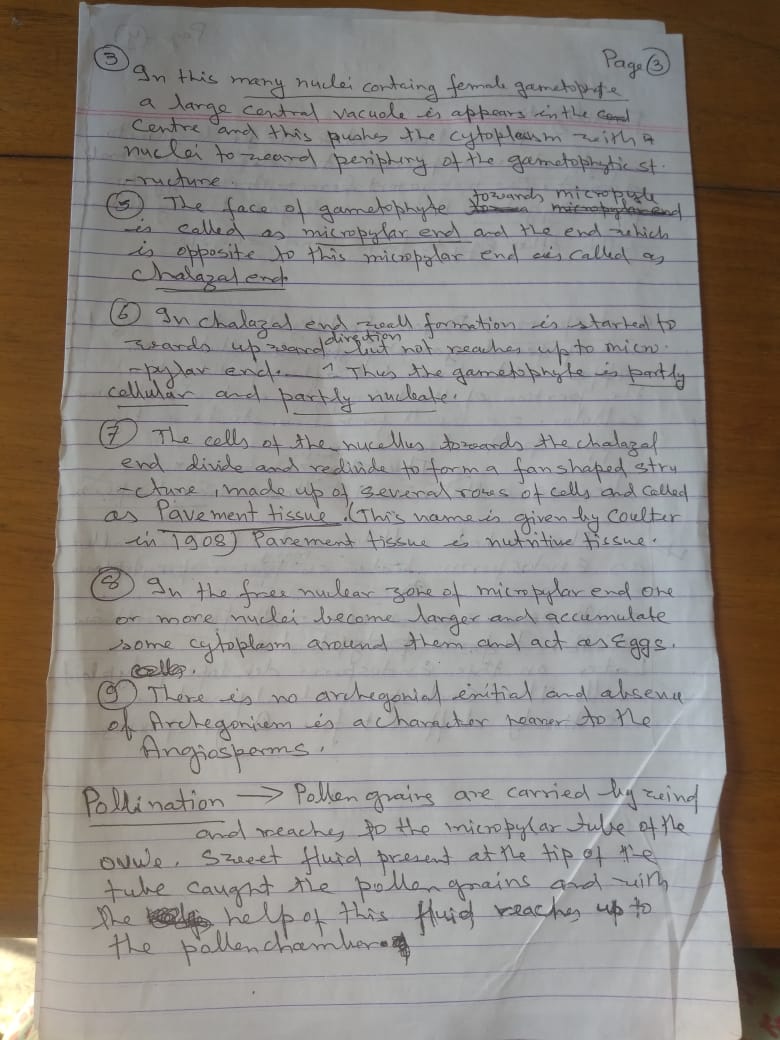 Page ③
③ In this many nuclei containg female gametophyte
a large central vacuole is appears in the
Centre and this pushes the cytoplasm with a
nuclei to ward periphery of the gametophytic st.
-ructure.
⑤ The face of gametophyte towards micropyle
is called as micropylar end and the end which
is opposite to this micropylar end is called as
Chalazal end
⑥ In chalazal end wall formation is started to
wards up ward direction but not reaches up to micro.
-pylar end. Thus the gametophyte is partly
cellular and partly nucleate.
⑦ The cells of the nucellus towards the chalazal
end divide and redivide to form a fan shaped stru
-cture, made up of several rows of cells and called
as Pavement tissue. (This name is given by Coulter
in 1908) Pavement tissue is nutritive tissue.
⑧ In the free nuclear zone of micropylar end one
or more nuclei become larger and accumulate
some cytoplasm around them and act as Eggs.
⑨ There is no archegonial initial and absence
of Archegonium is a character nearer to the
Angiosperms.
Pollination → Pollen grains are carried by wind
and reaches to the micropylar tube of the
ovule. Sweet fluid present at the tip of the
tube caught the pollen grains and with
the help of this fluid reaches up to
the pollen chamber.